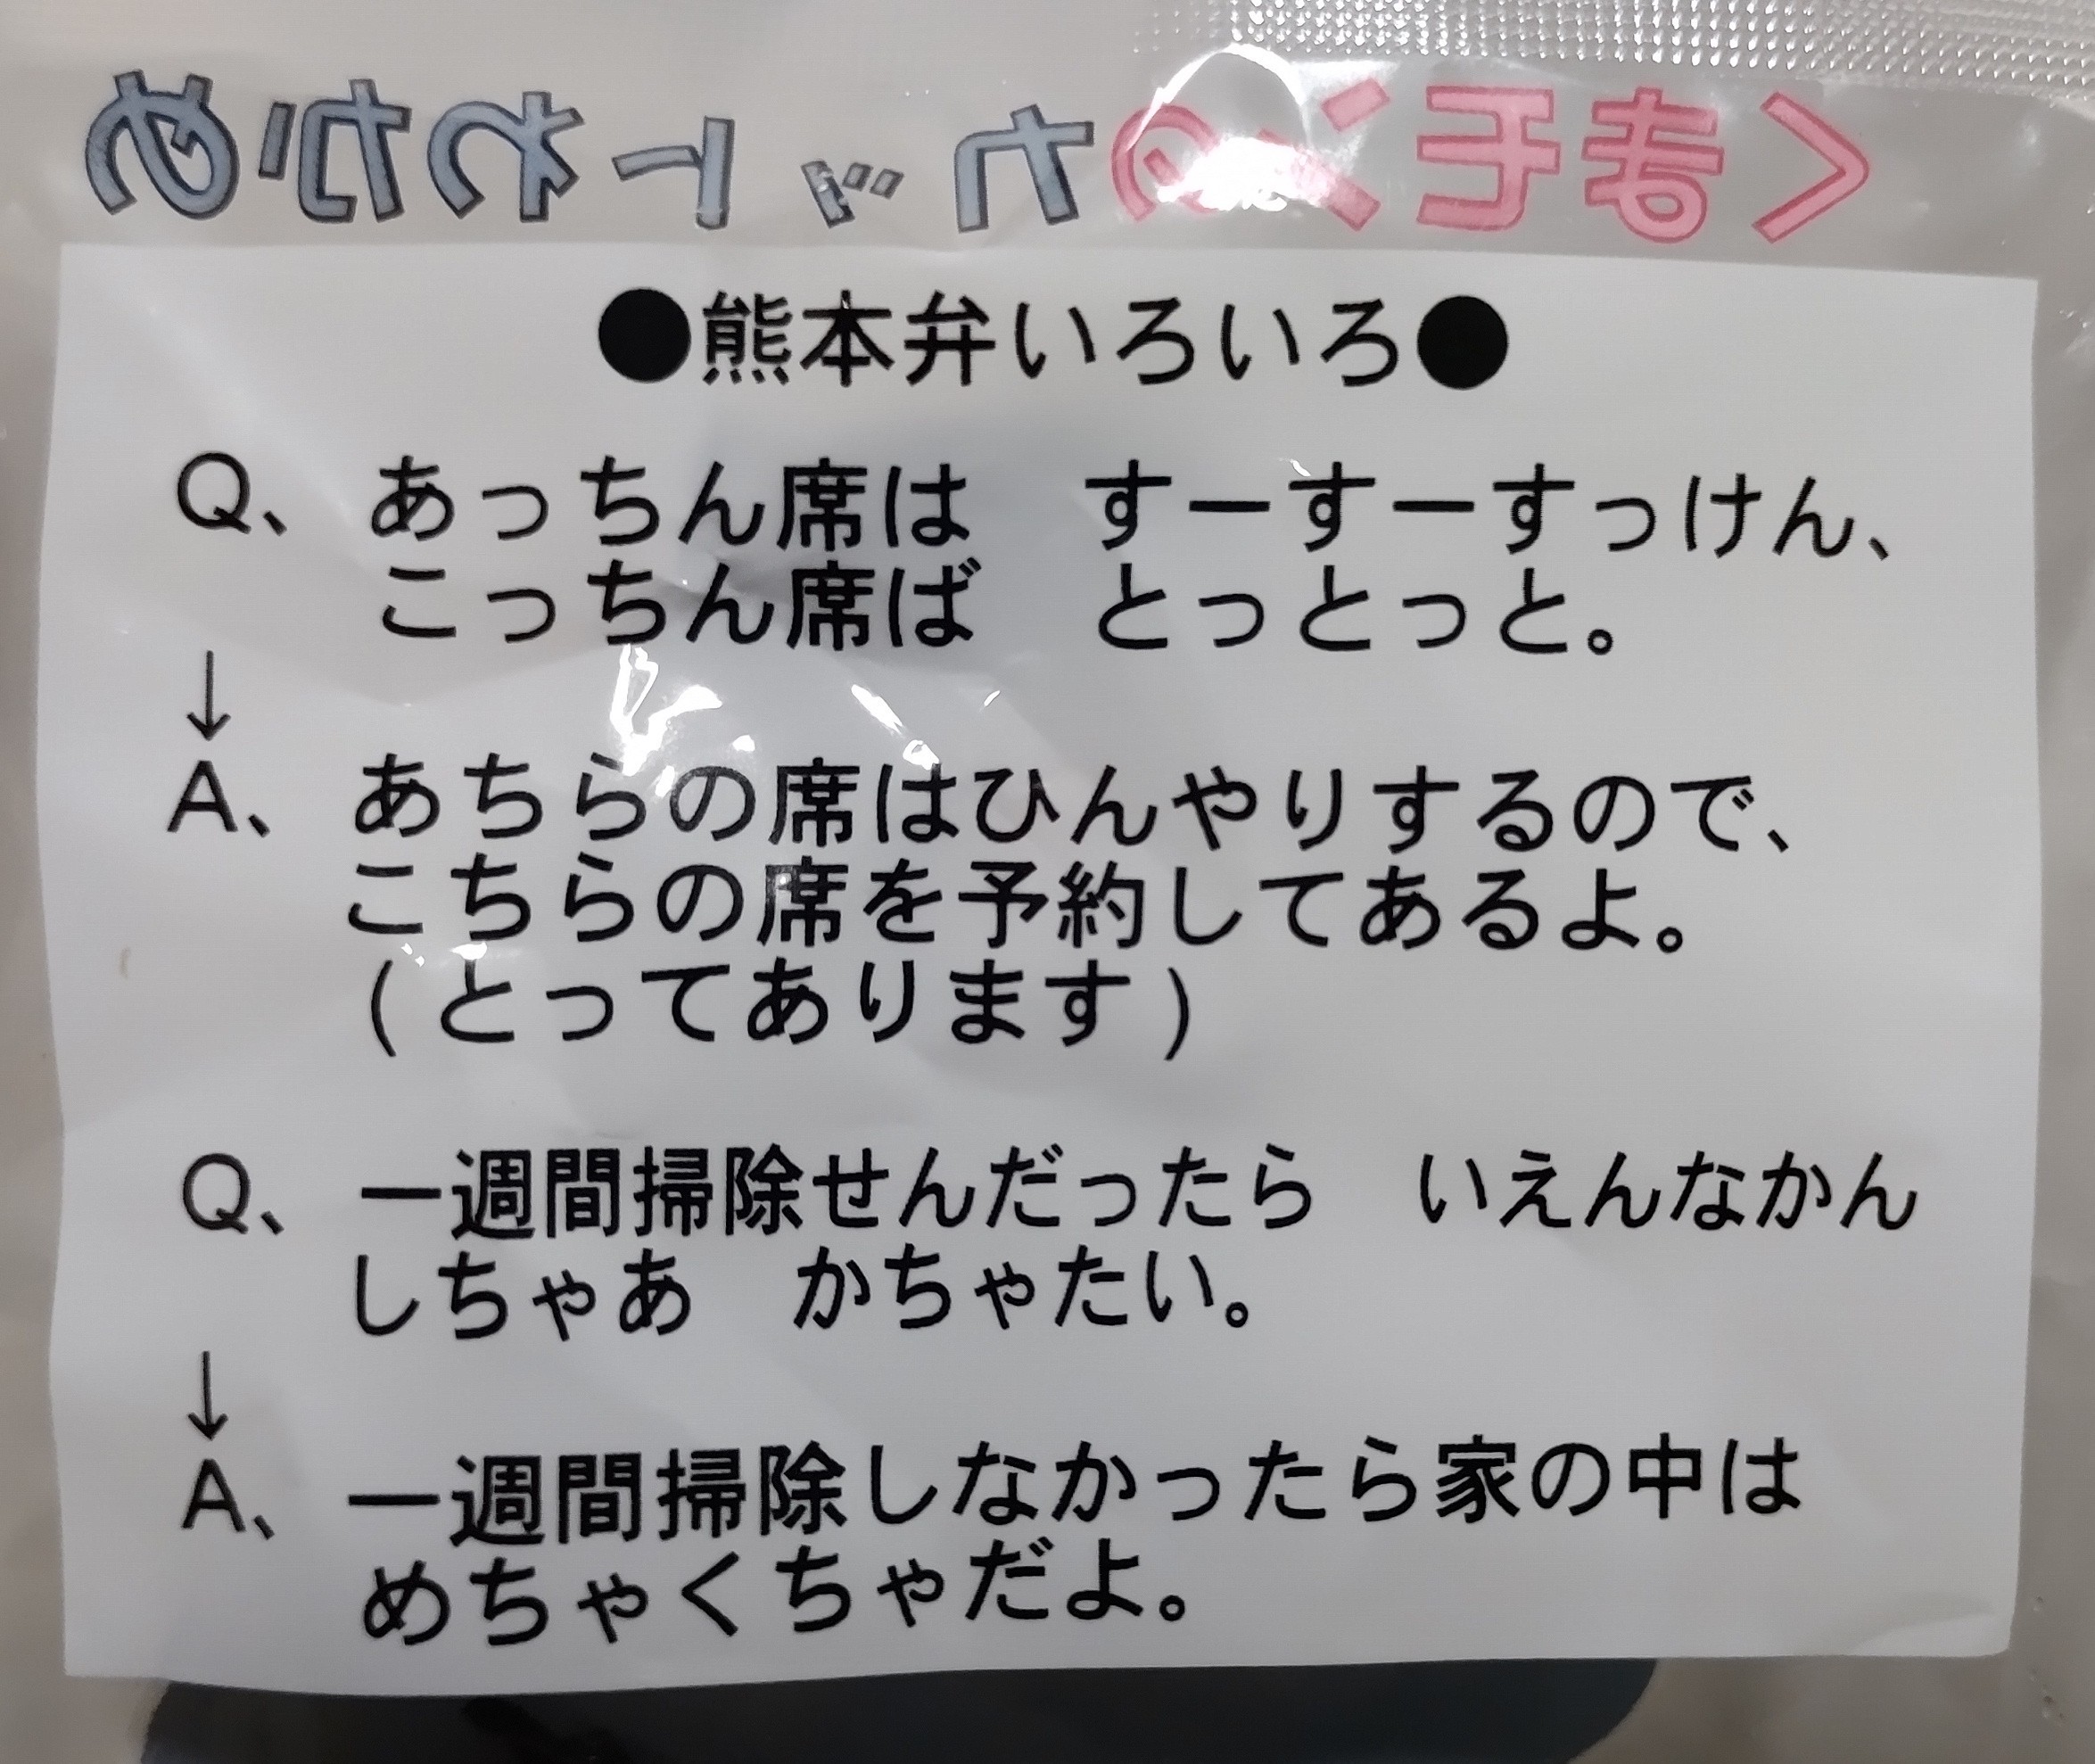 くまモンの
●熊本弁いろいろ●
Q、あっちん席は　すーすーすっけん、
こっちん席ば　とっとっと。
↓
A、あちらの席はひんやりするので、
こちらの席を予約してあるよ。
(とってあります)
Q、一週間掃除せんだったら　いえんなかん
しちゃあ　かちゃたい。
↓
A、一週間掃除しなかったら家の中は
めちゃくちゃだよ。